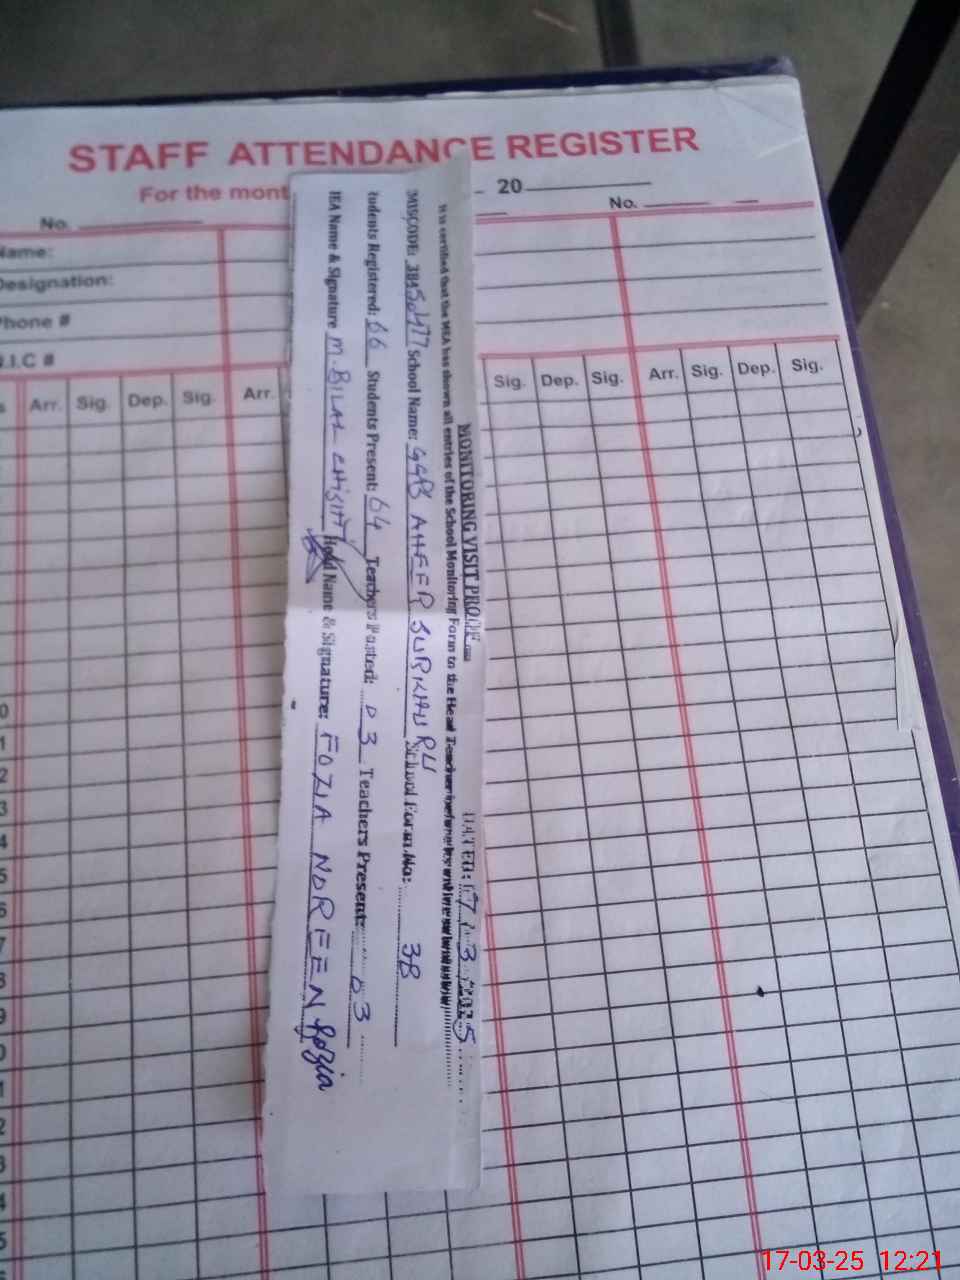 STAFF ATTENDANCE REGISTER
For the mont
20
No.
No.
Name:
Designation:
Phone #
N.I.C #
Arr. Sig. Dep. Sig. Arr. Sig. Dep. Sig. Arr. Sig. Dep. Sig.
MONITORING VISIT PROOF
DATED: 17.03.2025
It is certified that the MEA has shown all entries of the School Monitoring Form to the Head Teacher before
MISCODE: 38450477 School Name: GGPS AHEER SURKHURU School Form No: 38
tudents Registered: 66 Students Present: 64 Teachers Posted: 03 Teachers Present: 03
MEA Name & Signature M. BILAL CHISHTI Head Name & Signature: FOZIA NOREEN fozia
17-03-25 12:21